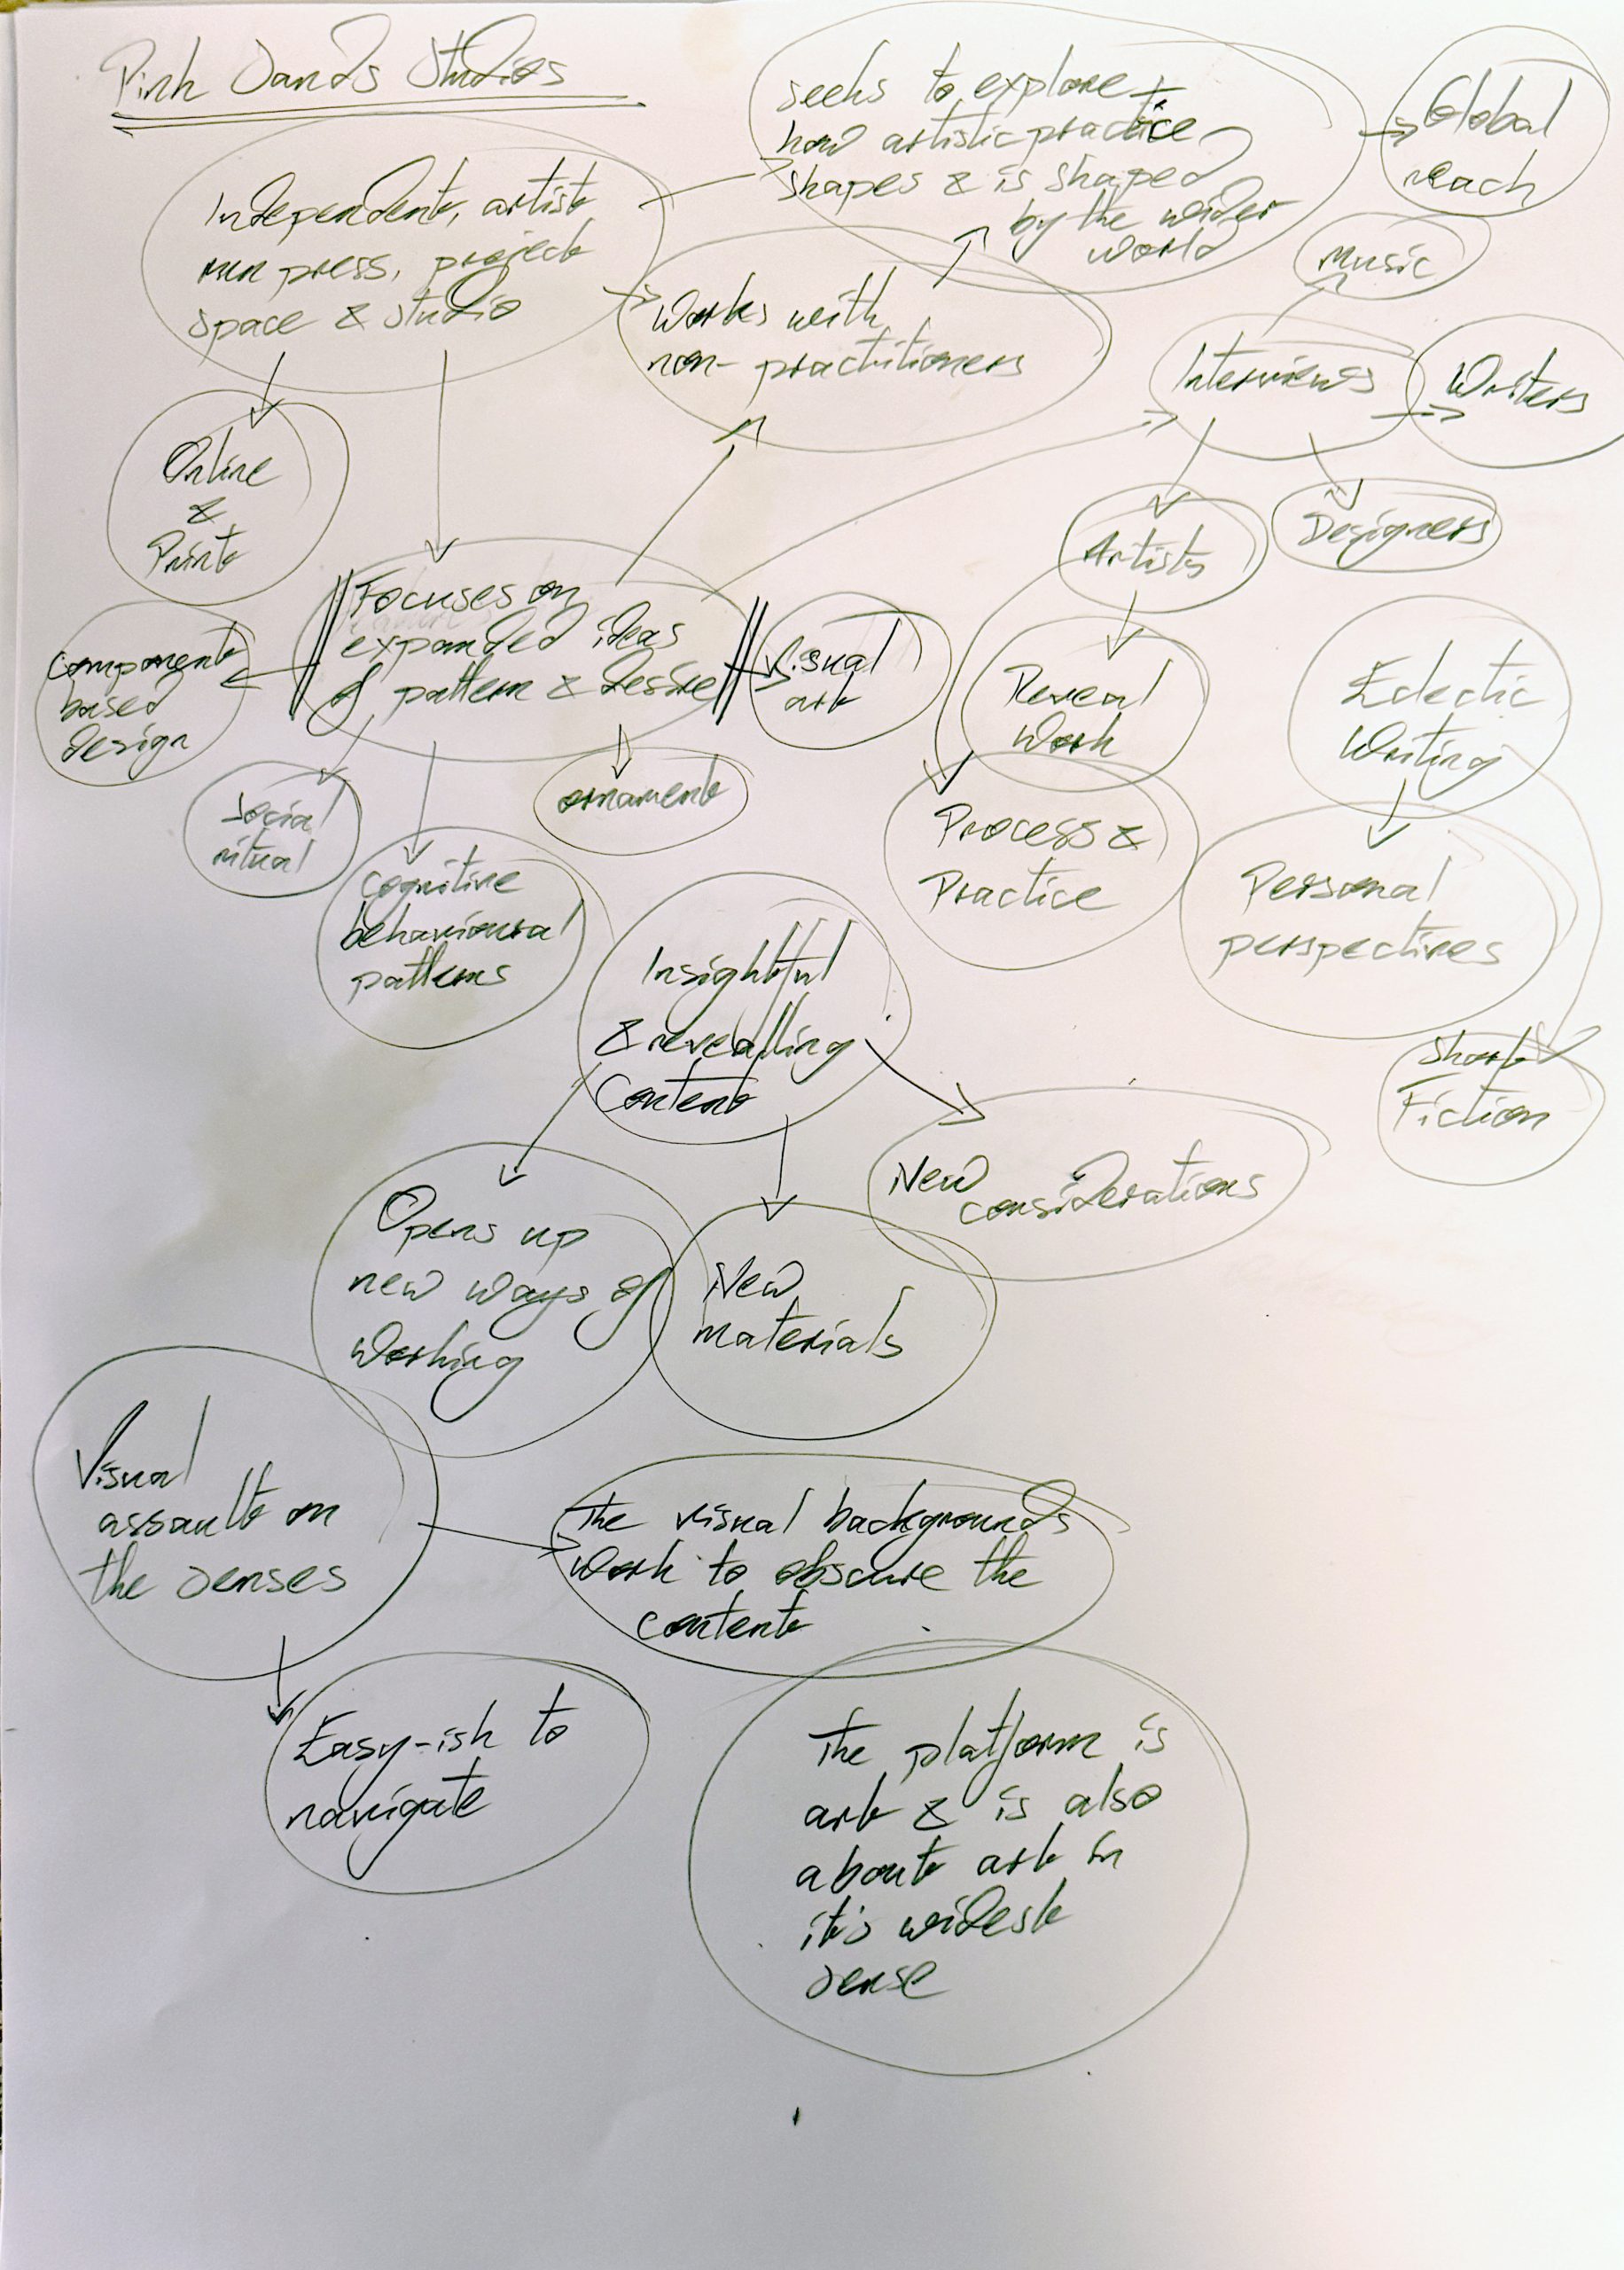 Pink Sands Studios
seeks to explore
how artistic practice
shapes & is shaped
by the wider
world
Global
reach
Independent, artist
run press, project
space & studio
Works with
non-practitioners
Music
Interviews
Writers
Online
&
Print
Artists
Designers
Focuses on
expanded ideas
of pattern & desire
Visual
art
component
based
design
Reveal
Work
Eclectic
Writing
social
ritual
ornament
cognitive
behavioural
patterns
Process &
Practice
Personal
perspectives
Insightful
& revealling
Content
Short
Fiction
New
considerations
Opens up
new ways of
working
New
materials
Visual
assault on
the senses
The visual backgrounds
work to obscure the
content
Easy-ish to
navigate
The platform is
art & is also
about art in
it's widest
sense